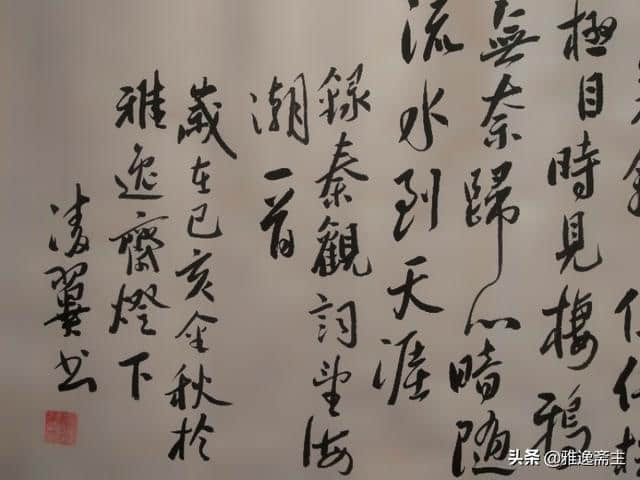 極目時見棲鴉
無奈歸心暗隨
流水到天涯
録秦觀詞望海
潮一首
歲在己亥金秋於
雅逸齋燈下
凌翼书
头条 @雅逸斋主